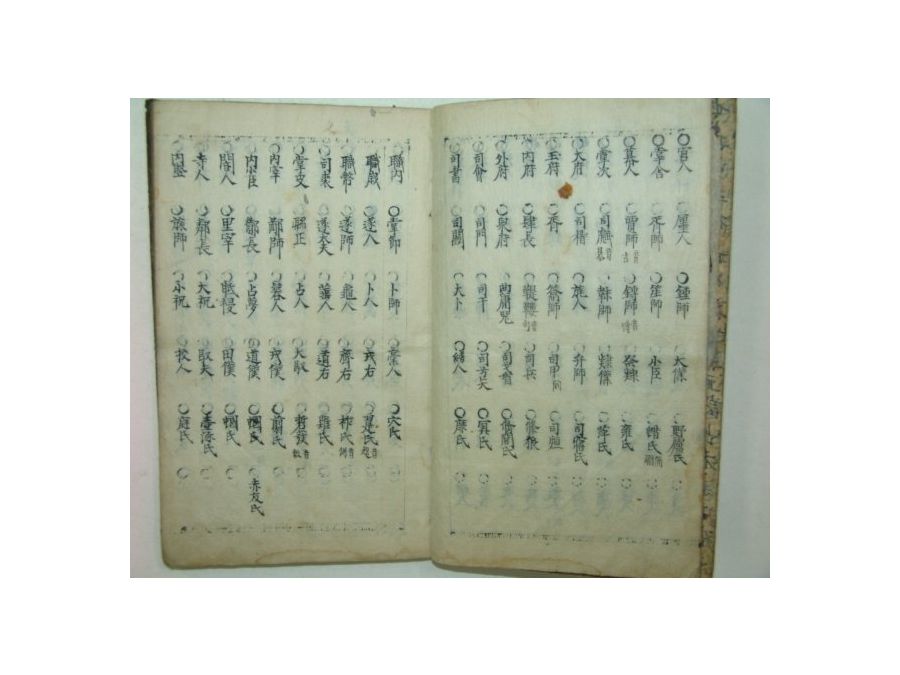 宮人 ○廛人 ○鍾師 ○大僕 ○野廬氏
掌舍 ○胥師 ○笙師 ○小臣 ○蜡氏
幕人 ○賈師 ○鎛師 ○祭僕 ○雍氏
掌次 ○司虣 ○韎師 ○隸僕 ○萍氏
大府 ○司稽 ○旄人 ○弁師 ○司寤氏
玉府 ○胥 ○籥師 ○司甲 ○司烜
內府 ○肆長 ○鞮鞻 ○司兵 ○條狼
外府 ○泉府 ○典庸器 ○司戈盾 ○脩閭氏
司會 ○司門 ○司干 ○司弓矢 ○冥氏
司書 ○司關 ○大卜 ○繕人 ○庶氏
職內 ○掌節 ○卜師 ○稾人 ○穴氏
職歲 ○遂人 ○卜人 ○戎右 ○翨氏
職幣 ○遂師 ○龜人 ○齊右 ○柞氏
司裘 ○遂大夫 ○菙人 ○道右 ○薙氏
掌皮 ○縣正 ○占人 ○大馭 ○硩蔟
內宰 ○鄙師 ○簭人 ○戎僕 ○翦氏
內小臣 ○酇長 ○占夢 ○道僕 ○蟈氏 ○赤犮氏
閽人 ○里宰 ○眡祲 ○田僕 ○蟈氏
寺人 ○鄰長 ○大祝 ○馭夫 ○壺涿氏
內豎 ○旅師 ○小祝 ○校人 ○庭氏